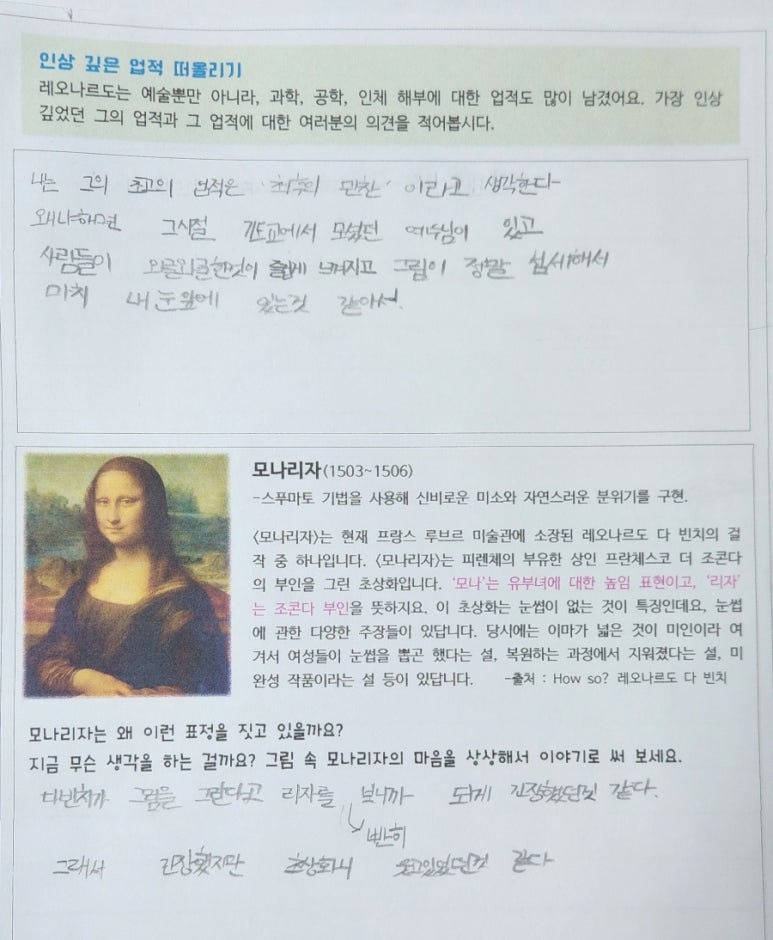 인상 깊은 업적 떠올리기
레오나르도는 예술뿐만 아니라, 과학, 공학, 인체 해부에 대한 업적도 많이 남겼어요. 가장 인상
깊었던 그의 업적과 그 업적에 대한 여러분의 의견을 적어봅시다.
나는 그의 최고의 업적은 '최후의 만찬' 이라고 생각한다
왜냐하면 그시절 기도교에서 모셨던 예수님이 있고
사람들이 왁글왁글한것이 즐겁게 느껴지고 그림이 정말 섬세해서
마치 내 눈앞에 있는것 같아서.
모나리자(1503~1506)
-스푸마토 기법을 사용해 신비로운 미소와 자연스러운 분위기를 구현.
〈모나리자〉는 현재 프랑스 루브르 미술관에 소장된 레오나르도 다 빈치의 걸
작 중 하나입니다. 〈모나리자〉는 피렌체의 부유한 상인 프란체스코 더 조콘다
의 부인을 그린 초상화입니다. '모나'는 유부녀에 대한 높임 표현이고, '리자'
는 조콘다 부인을 뜻하지요. 이 초상화는 눈썹이 없는 것이 특징인데요, 눈썹
에 관한 다양한 주장들이 있답니다. 당시에는 이마가 넓은 것이 미인이라 여
겨서 여성들이 눈썹을 뽑곤 했다는 설, 복원하는 과정에서 지워졌다는 설, 미
완성 작품이라는 설 등이 있답니다. -출처 : How so? 레오나르도 다 빈치
모나리자는 왜 이런 표정을 짓고 있을까요?
지금 무슨 생각을 하는 걸까요? 그림 속 모나리자의 마음을 상상해서 이야기로 써 보세요.
다빈치가 그림을 그린다고 리자를 보니까 되게 긴장했던것 같다.
빤히
그래서 긴장했지만 초상화니 웃고있었던것 같다